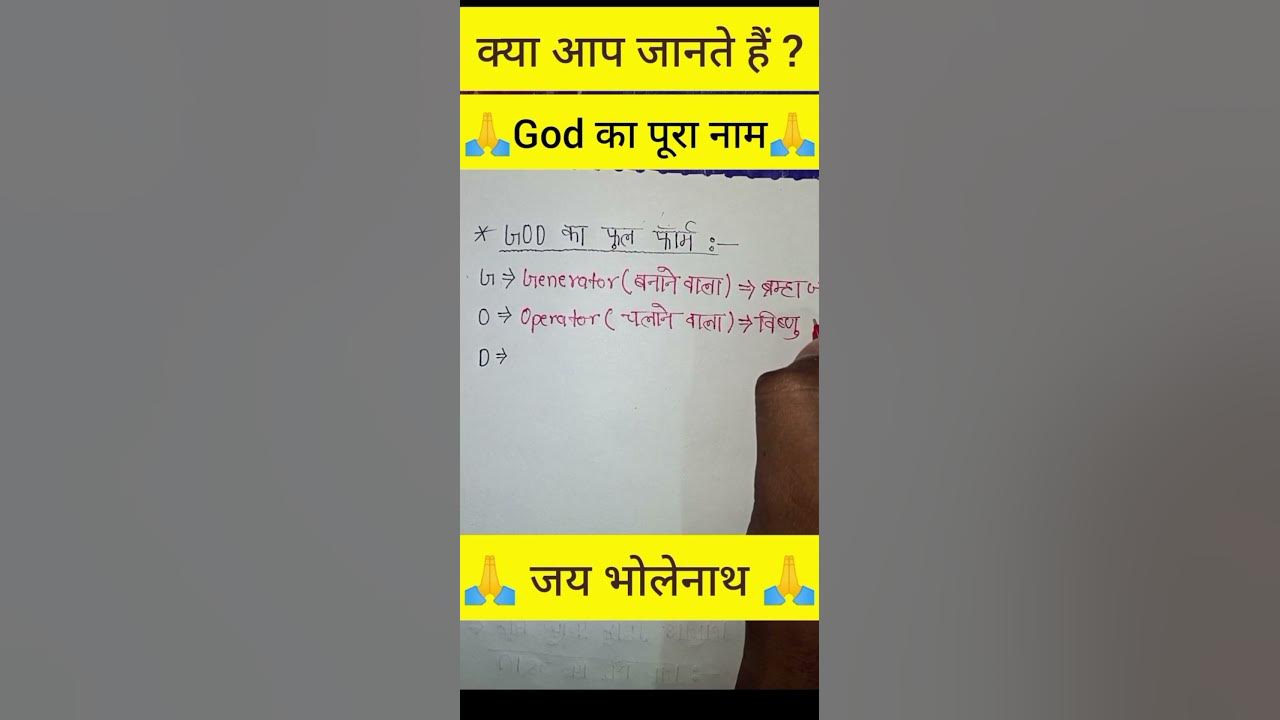 क्या आप जानते हैं ?
🙏God का पूरा नाम🙏
* GOD का फूल फॉर्म :-
G ⇒ Generator (बनाने वाला) ⇒ ब्रम्हा
O ⇒ Operator ( चलाने वाला) ⇒ विष्णु
D ⇒
🙏 जय भोलेनाथ 🙏